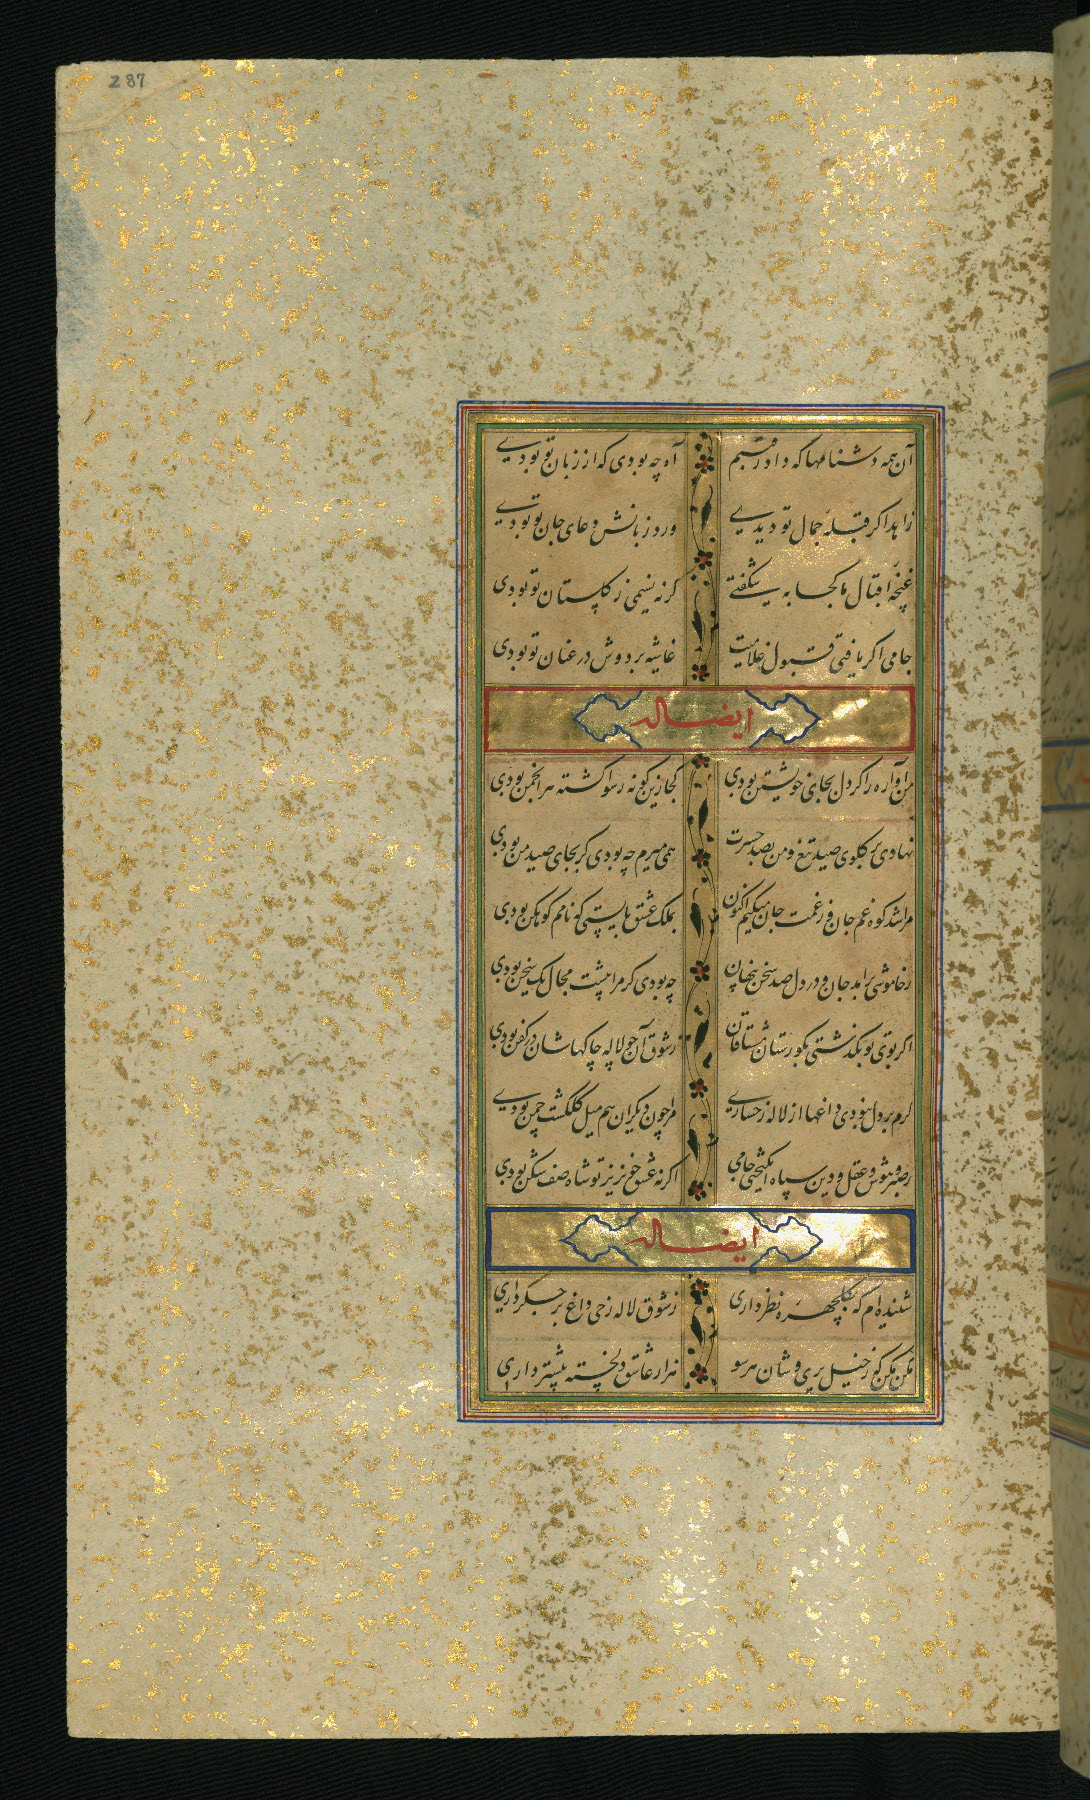 287
آن همه دشنامها که داد رقیبم آه چه بودی که از زبان تو بودی
زاهد اگر قبله جمال تو دیدی ورد زبانش دعای جان تو بودی
غنچه اقبال ما کجا به شکفتی گر نه نسیمی ز گلستان تو بودی
جامی اگر یافتی قبول غلامیت غاشیه بر دوش در عنان تو بودی
ایضا له
من آواره را گر دل بجای خویشتن بودی کجا زین گونه رسوا گشته هر انجمن بودی
نهادی بر گلوی صید تیغ و من بصد حسرت همی میرم چه بودی گر بجای صید من بودی
مرا شد کوه غم جان و ز غمت جان میکنم اکنون بملک عشق بایستی که نامم کوهکن بودی
ز خاموشی برآمد جان و در دل صد سخن پنهان چه بودی گر مرا پیشت مجال یک سخن بودی
اگر بوی تو بگذشتی بگورستان مشتاقان ز شوق آن چو لاله چاکهاشان در کفن بودی
گرم بر دل نبودی داغها از لاله رخساری مرا چون دیگران هم میل گلگشت چمن بودی
ز صبر و هوش و عقل و دین سپاه انگیختی جامی اگر نه عشق خونریز تو شاه صف شکن بودی
ایضا له
شنیده‌ام که بگلچهره نظر داری ز شوق لاله رخی داغ بر جگر داری
مکن مکن که ز خیل پری وشان هر سو هزار عاشق دلخسته بیشتر داری